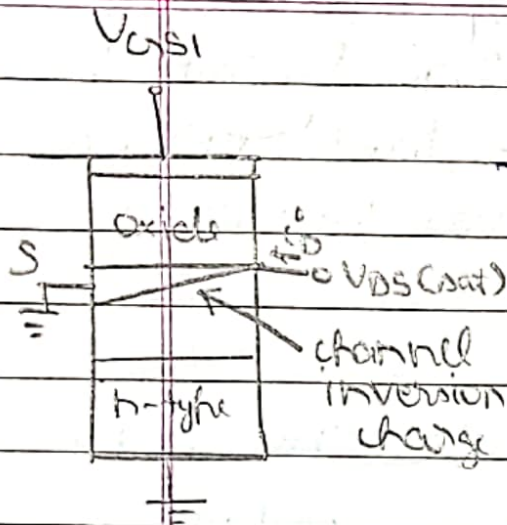 VGS1
oxide
iD
S
VDS(sat)
channel
inversion
charge
n-type